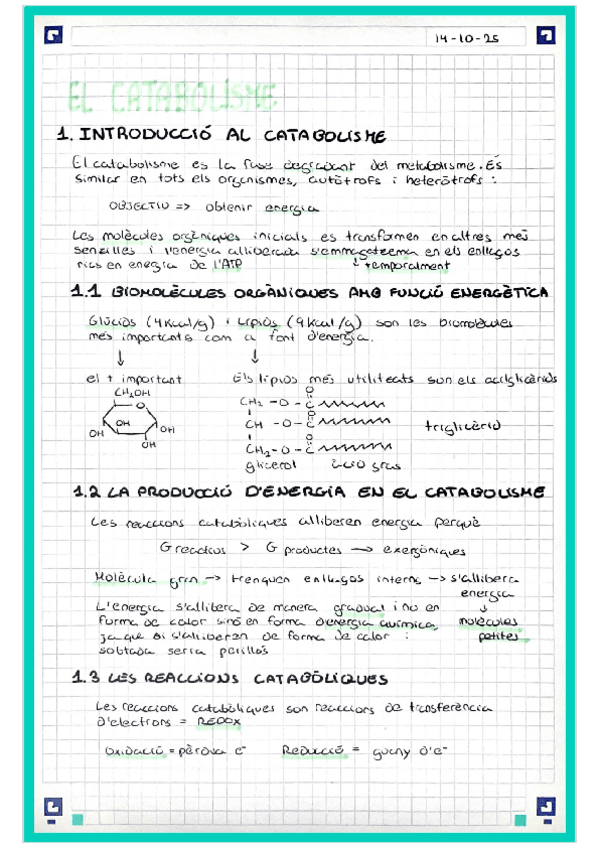 14-10-25
EL CATABOLISME
1. INTRODUCCIÓ AL CATABOLISME
El catabolisme es la fase degradant del metabolisme. És
similar en tots els organismes, autòtrofs i heteròtrofs :
OBJECTIU => obtenir energia
Les molècules orgàniques inicials es transformen en altres més
senzilles i l'energia alliberada s'emmagatzema en els enllaços
rics en energia de l'ATP
↳ temporalment
1.1 BIOMOLÈCULES ORGÀNIQUES AMB FUNCIÓ ENERGÈTICA
Glúcids (4Kcal/g) i Lípids (9Kcal/g) son les biomolècules
més importants com a font d'energia.
↓ ↓
el + important Els lípids més utilitzats son els acilglicèrids
CH2OH
O
OH OH OH
OH
O
CH2 - O - C
O
CH - O - C triglicèrid
O
CH2 - O - C
glicerol àcid gras
1.2 LA PRODUCCIÓ D'ENERGIA EN EL CATABOLISME
Les reaccions catabòliques alliberen energia perquè
G reactius > G productes → exergòniques
Molècula gran → trenquen enllaços interns → s'allibera
energia
↓
molècules
petites
L'energia s'allibera de manera gradual i no en
forma de calor sinó en forma d'energia química,
ja que si s'alliberen de forma de calor :
sobtada seria perillós
1.3 LES REACCIONS CATABÒLIQUES
Les reaccions catabòliques son reaccions de transferència
d'electrons = REDOX
Oxidació = pèrdua e⁻ Reducció = guany d'e⁻